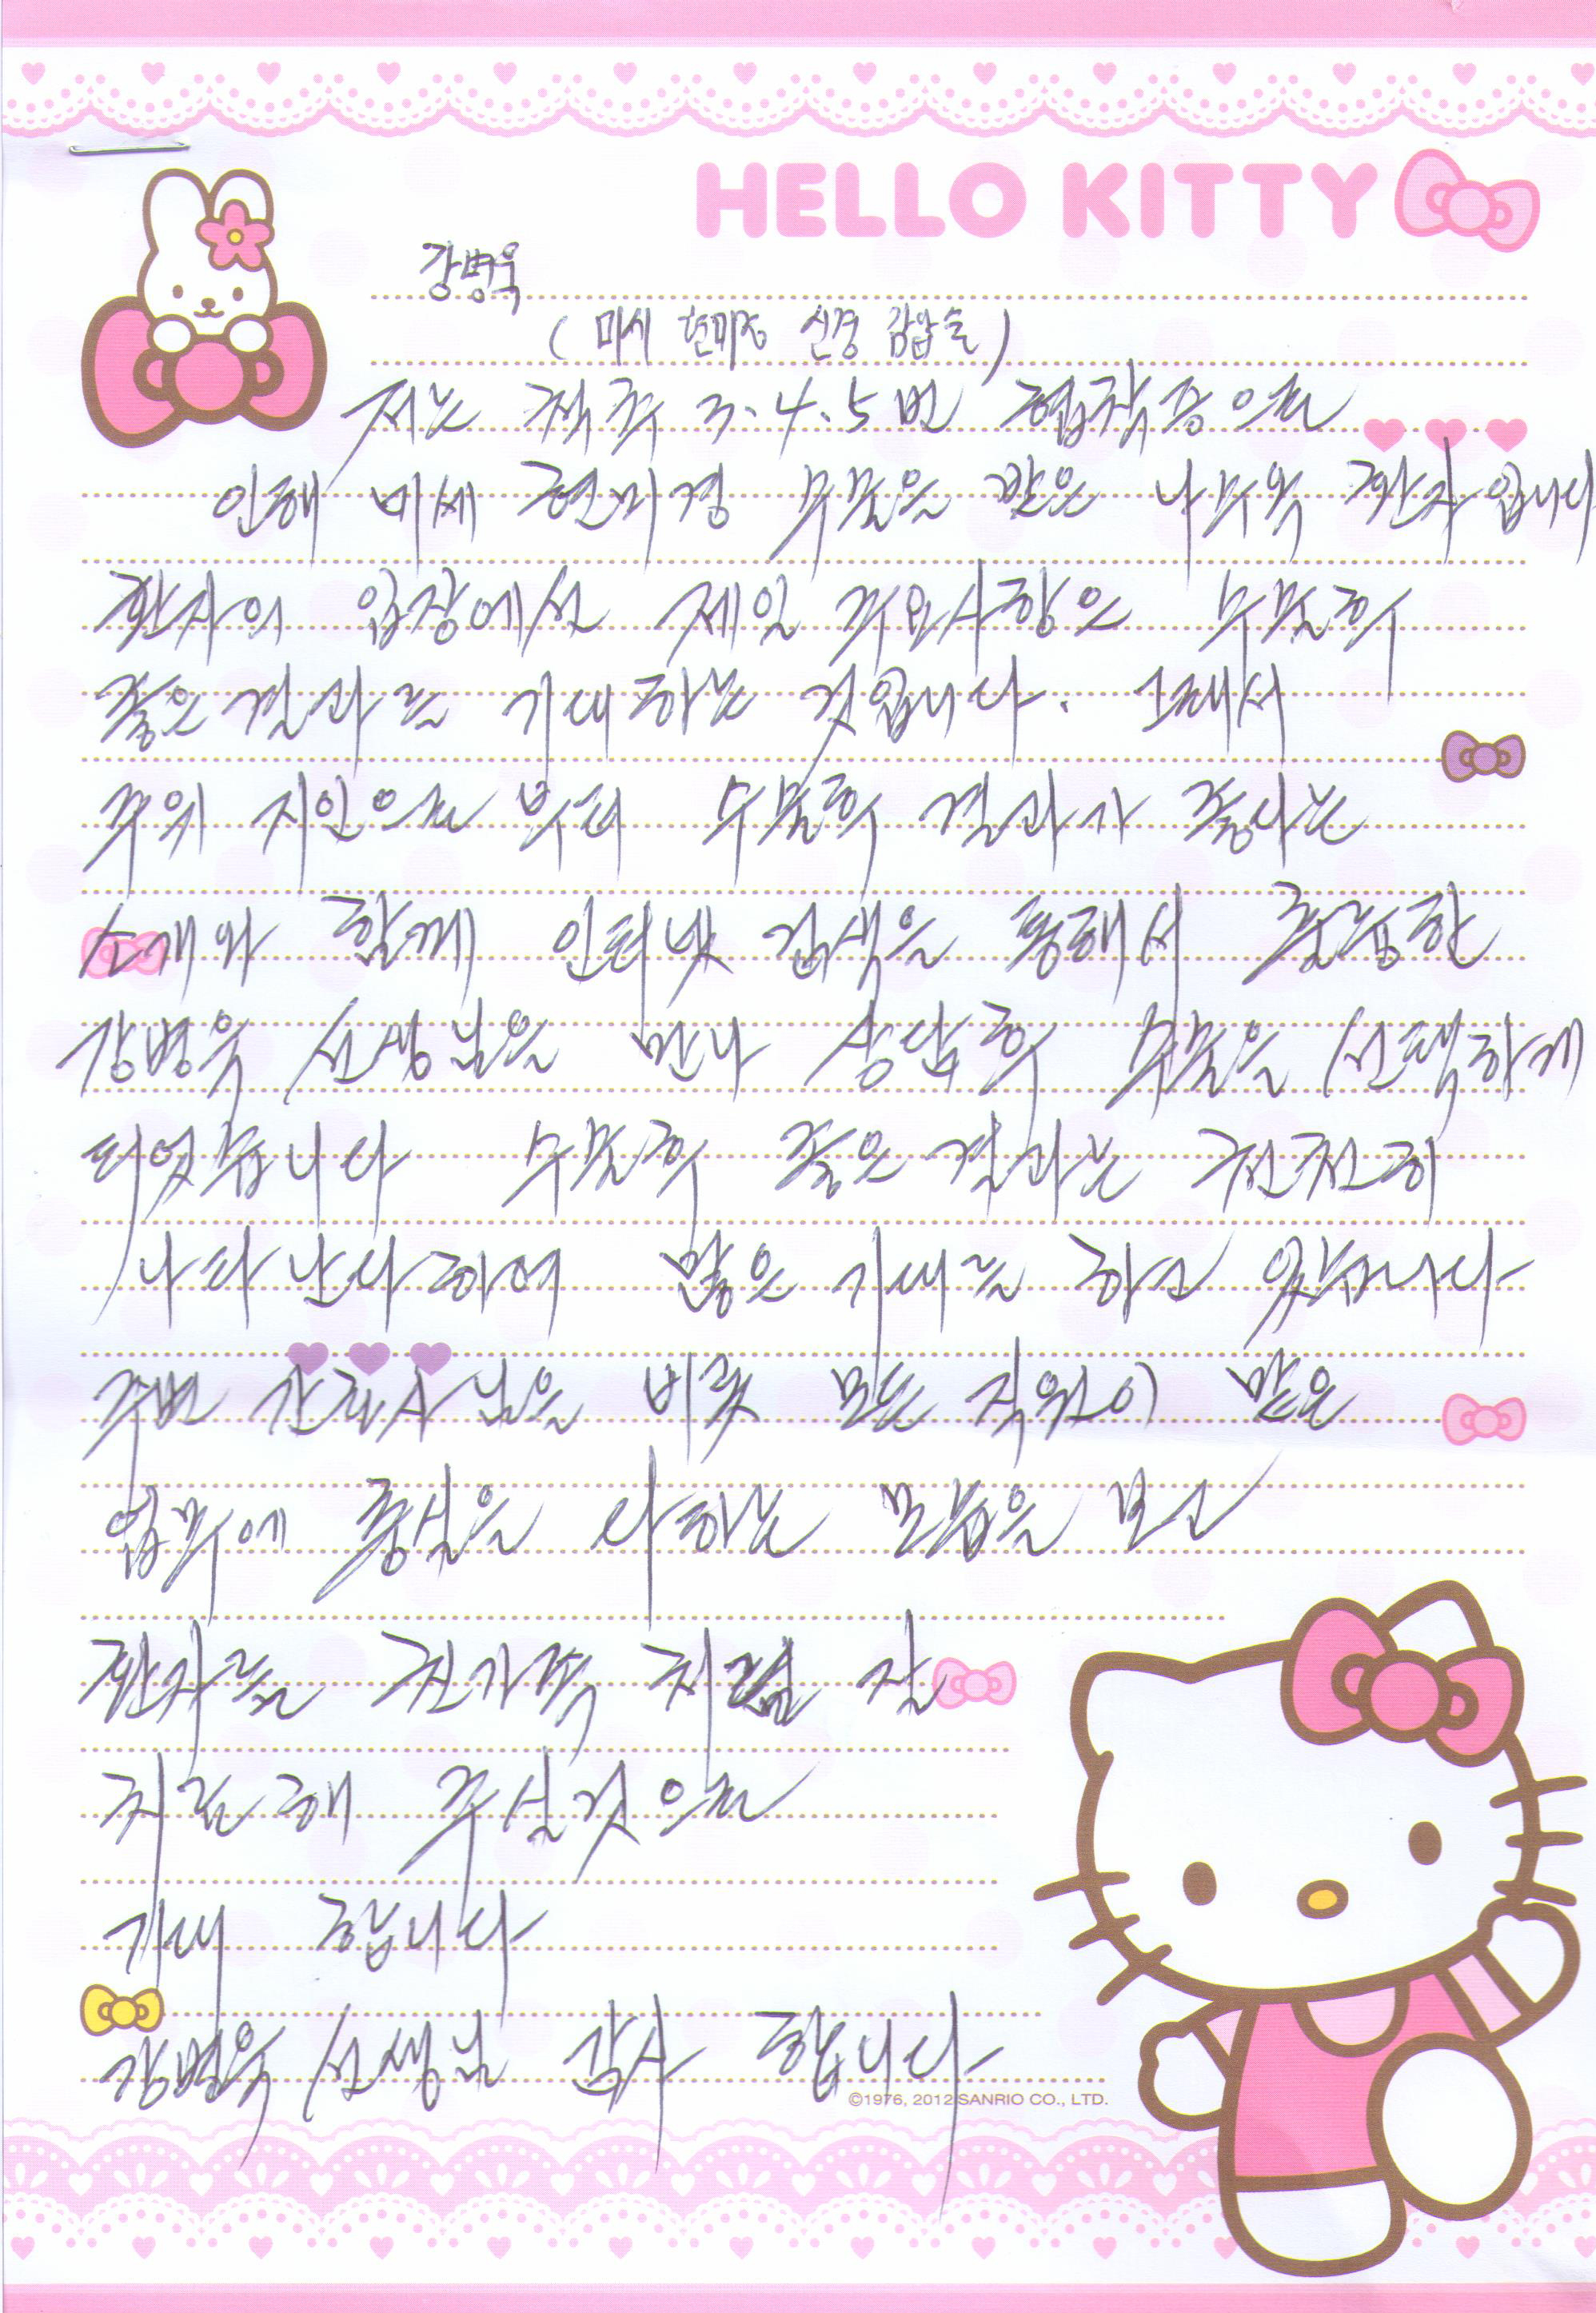 HELLO KITTY
강병욱
(미세 현미경 신경 감압술)
저는 척추 3.4.5번 협착증으로
인해 미세 현미경 수술을 받은 나수옥 환자 입니다
환자의 입장에서 제일 주요사항은 수술후
좋은 결과를 기대하는 것입니다. 그래서
주위 지인으로 부터 수술후 결과가 좋다는
소개와 함께 인터넷 검색을 통해서 출중한
강병욱 선생님을 만나 상담후 수술을 선택하게
되었습니다 수술후 좋은 결과는 천천히
나타난다하여 많은 기대를 하고 있습니다
주변 간호사님을 비롯 모든 직원이 맡은
임무에 충실을 다하는 모습을 보고
환자를 친가족 처럼 잘
치료해 주실것으로
기대 합니다
강병욱 선생님 감사 합니다
©1976, 2012 SANRIO CO., LTD.